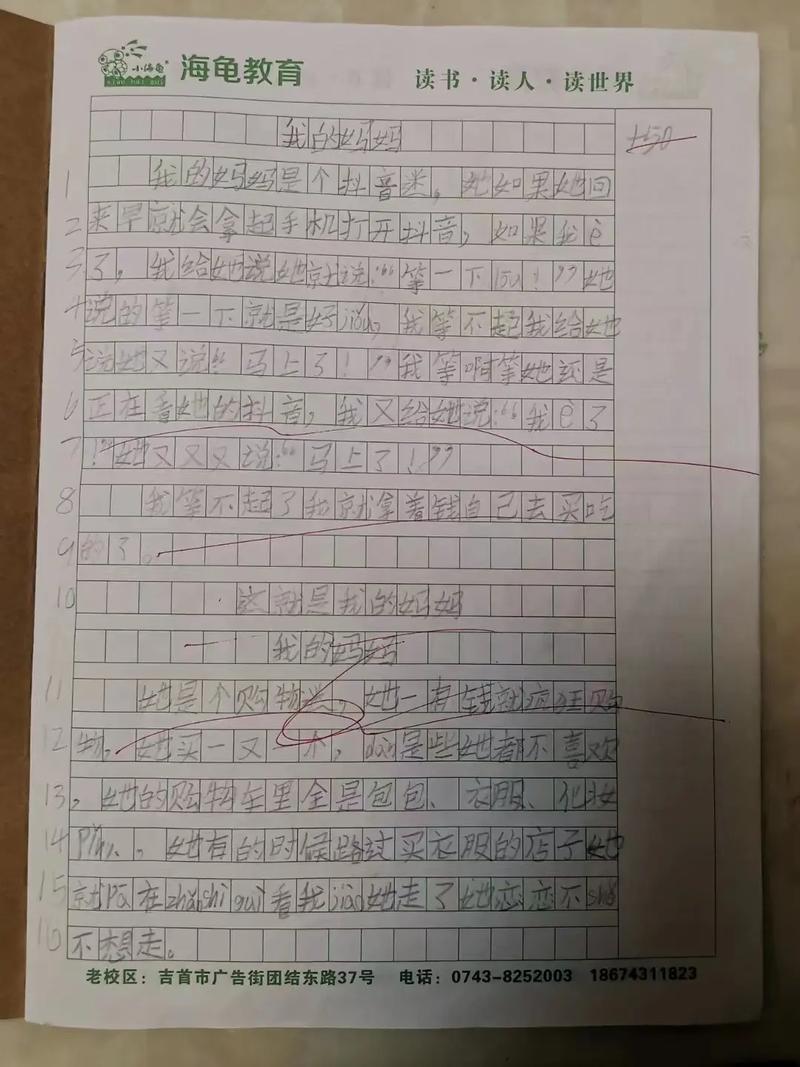 小海龟 海龟教育 读书·读人·读世界
我的妈妈
1 我的妈妈是个抖音迷，她如果她回
2 来早就会拿起手机打开抖音，如果我è
3 了，我给她说她就说：“等一下 ！”她
4 说的等一下就是好jiǔ，我等不起我给她
5 说她又说“马上了！”我等啊等她还是
6 正在看她的抖音，我又给她说：“我è了
7 ！”她又又又说：“马上了！”
8 我等不起了我就拿着钱自己去买吃
9 的了。
10 这就是我的妈妈
我的妈妈
11 她是个购物迷，她一有钱就疯狂购
12 物，她买一又一个，dàn是些她都不喜欢
13 ，她的购物车里全是包包、衣服、化妆
14 Pǐn、。她有的时候路过买衣服的店子她
15 就Pā在zhǎnshì guì看我jiào她走了她恋恋不shě
16 不想走。
老校区：吉首市广告街团结东路37号 电话：0743-8252003 18674311823